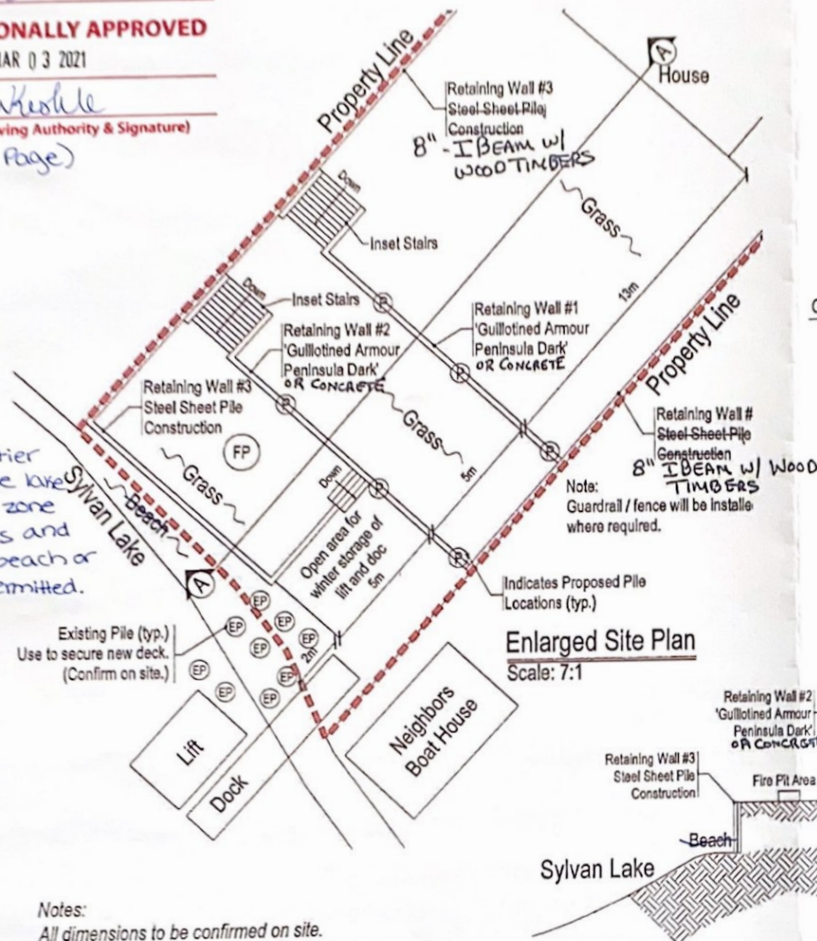 ONALLY APPROVED
MAR 03 2021
ving Authority & Signature)
Page)
Property Line
Retaining Wall #3
Steel Sheet Pile
Construction
8" - I BEAM W/
WOOD TIMBERS
A
House
Down
Inset Stairs
Grass
13m
Down
Inset Stairs
Retaining Wall #2
'Guillotined Armour
Peninsula Dark'
OR CONCRETE
P
P
P
Retaining Wall #1
'Guillotined Armour
Peninsula Dark'
OR CONCRETE
Property Line
Retaining Wall #3
Steel Sheet Pile
Construction
FP
P
P
P
Grass
5m
Retaining Wall #
Steel Sheet Pile
Construction
8" I BEAM W/ WOOD
TIMBERS
Note:
Guardrail / fence will be installe
where required.
tier
e lake
zone
s and
beach or
ermitted.
Sylvan Lake
Beach
Grass
Down
Open area for
winter storage of
lift and doc
5m
A
Indicates Proposed Pile
Locations (typ.)
Existing Pile (typ.)
Use to secure new deck.
(Confirm on site.)
EP
EP
EP
EP
EP
EP
EP
EP
EP
2m
Enlarged Site Plan
Scale: 7:1
Lift
Dock
Neighbors
Boat House
Retaining Wall #2
'Guillotined Armour
Peninsula Dark'
OR CONCRETE
Retaining Wall #3
Steel Sheet Pile
Construction
Fire Pit Area
Beach
Sylvan Lake
Notes:
All dimensions to be confirmed on site.